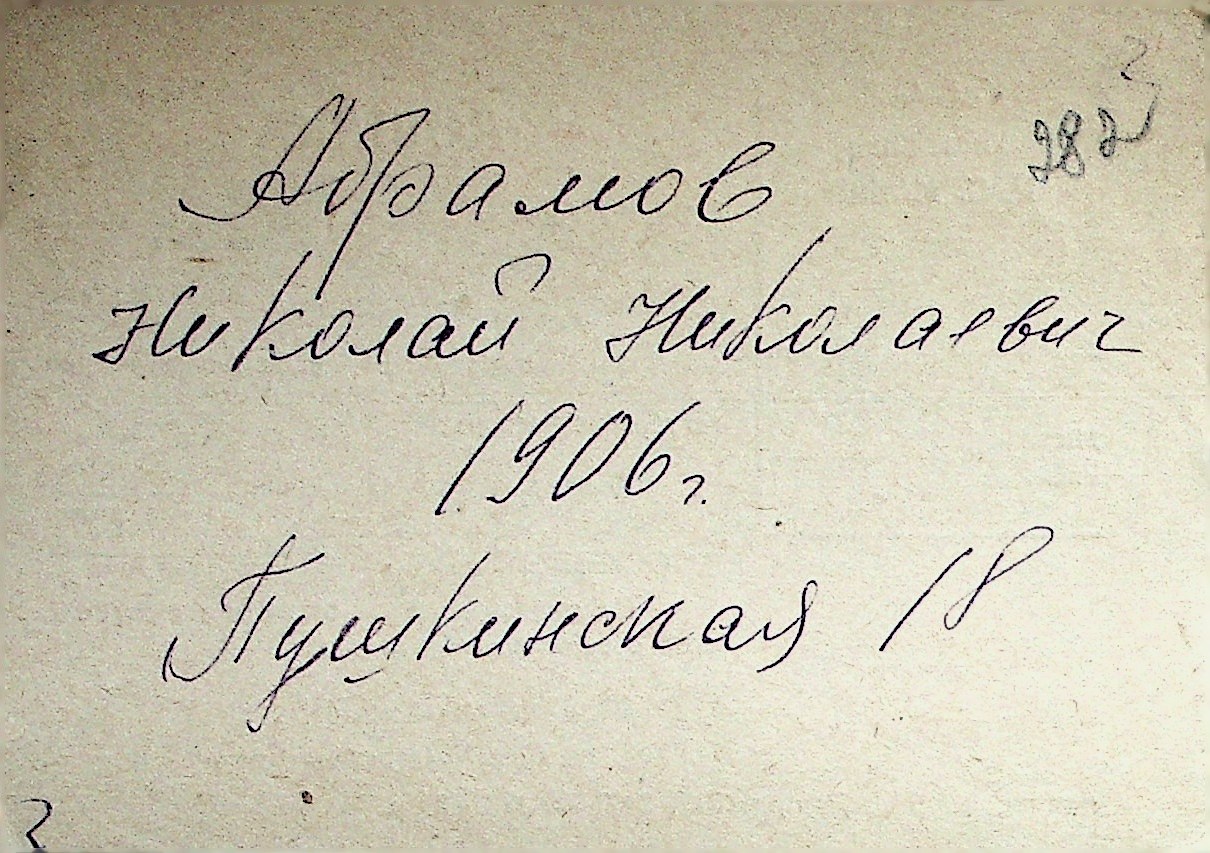 282
Абрамов
Николай Николаевич
1906г.
Пушкинская 18